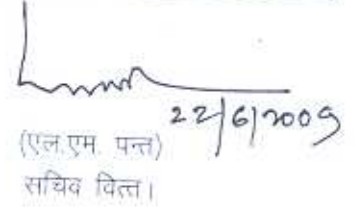 22/6/2009
(एल.एम. पन्त)
सचिव वित्त।